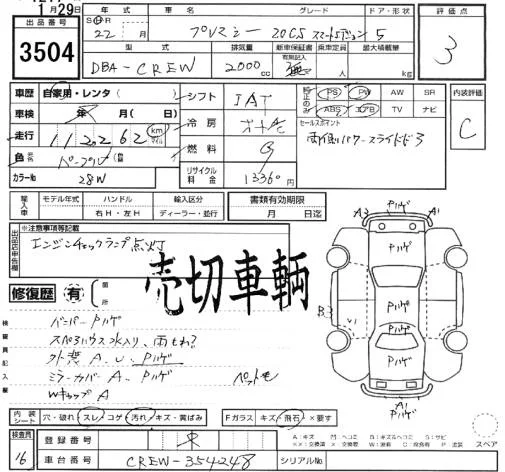 1月29日
出品番号 3504
S H R 年式 車名 グレード ドア・形状 評価点
22年 月 プレマシー 20CS スマートエディション 5 3
型式 排気量 新車保証書 乗車定員 最大積載量
有無記入
DBA-CREW 2000cc 無 kg
車歴 自家用・レンタ( ) シフト IAT 純正のみ PS PW AW SR 内装評価
車検 年 月(日) 冷房 ABS エアB TV ナビ C
走行 111,202 62 km マイル 燃料 G セールスポイント
両側パワースライドドア
色 パープル リサイクル料金 13360円
カラーNo 28W
輸入車 モデル年式 ハンドル 輸入区分 書類有効期限
右H・左H ディーラー・並行 月 日迄
出品店申告欄 ※注意事項等記載
エンジンチェックランプ点灯
売切車輌
修復歴 有 箇所
検査員記入欄
バンパーPハゲ
スペアハウス水入り、雨もれ?
外装 A、U、Pハゲ
ミラーカバーA、Pハゲ ペットモ
WキャップA
A3 Pハゲ A1
Pハゲ
B3 U1 Pハゲ
Pハゲ
A1
Pハゲ
スペア
内装シート 穴・破れ スレ コゲ 汚れ キズ・黄ばみ Fガラス キズ・飛石・×要す
検査員 16 登録番号
車台番号 CREW-354248 シリアルNo